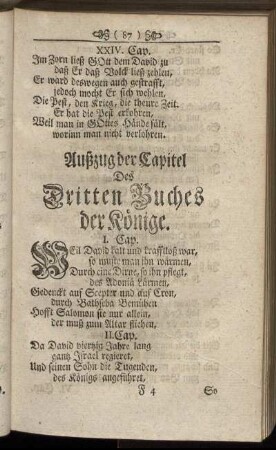 ( 87 )
XXIV. Cap.
Im Zorn ließ GOtt dem David zu
daß Er daß Volck ließ zehlen,
Er ward deswegen auch gestrafft,
jedoch mocht Er sich wehlen,
Die Pest, den Krieg, die theure Zeit.
Er hat die Pest erkohren,
Weil man in GOttes Hände fält,
worinn man nicht verlohren.
Außzug der Capitel
Des
Dritten Buches
der Könige.
I. Cap.
WEil David kalt und krafftloß war,
so must man ihn wärmen,
Durch eine Dirne, so ihn pflegt,
des Adoniä Lärmen,
Gedenckt auf Scepter und auf Cron,
durch Bathseba Bemühen
Hofft Salomon sie nur allein,
der muß zum Altar fliehen,
II. Cap.
Da David viertzig Jahre lang
gantz Israel regieret,
Und seinen Sohn die Tugenden,
des Königs angeführet,
F 4
So